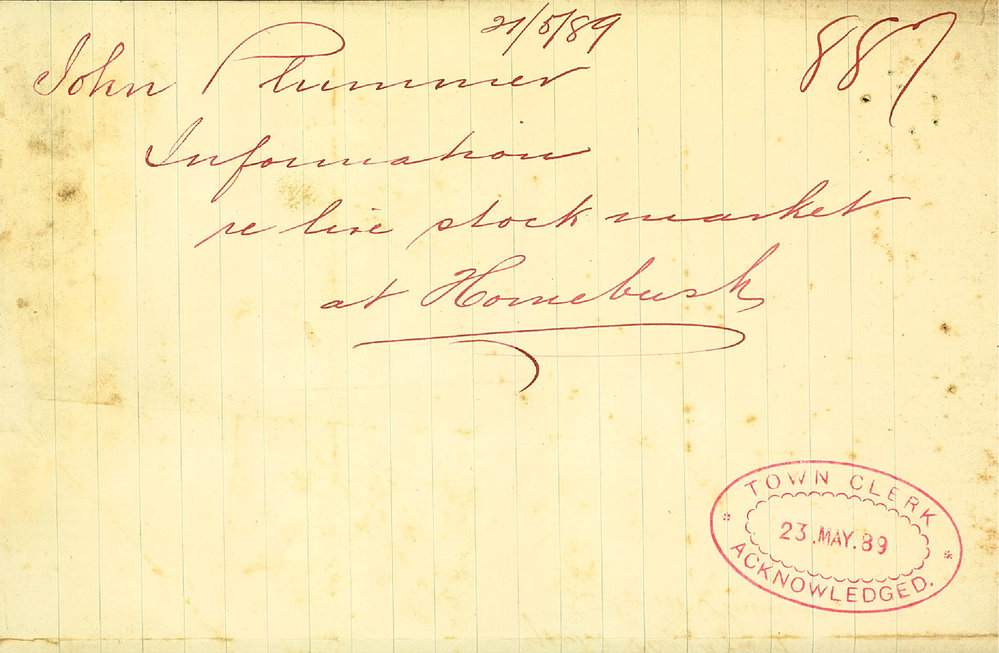 21/5/89
887
John Plummer
Information
re live stock market
at Homebush
TOWN CLERK
23.MAY.89
ACKNOWLEDGED.